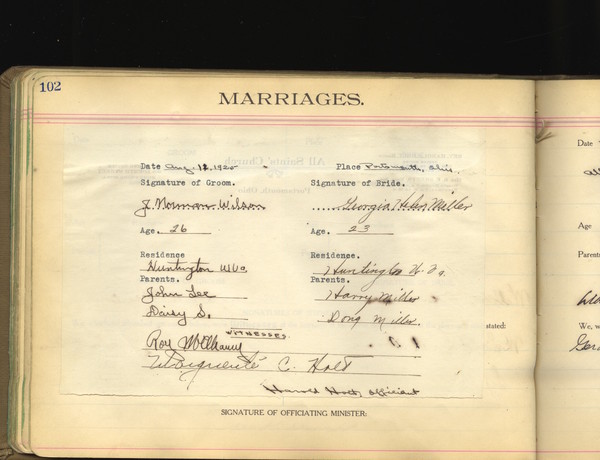 102
MARRIAGES.
All Saints' Church
Portsmouth, Ohio
Date Aug. 18, 1920 Place Portsmouth, Ohio.
Signature of Groom. Signature of Bride.
J. Norman Wilson Georgia Helen Miller
Age. 26 Age. 23
Residence Residence.
Huntington W Va. Huntington W. Va.
Parents. Parents.
John Lee Harry Miller
Daisy S. Miller.
WITNESSES
Roy
Marguerite C. Holt
Harold Holt, officiant
SIGNATURE OF OFFICIATING MINISTER:
Date
Age
Parents
stated:
We, w